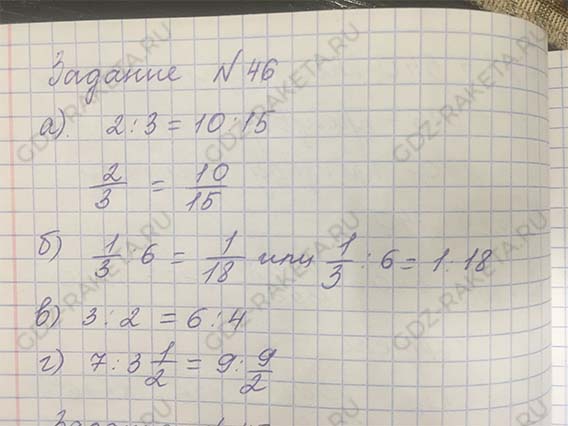 Задание № 46
а). 2 : 3 = 10 : 15
2/3 = 10/15
б) 1/3 : 6 = 1/18 или 1/3 : 6 = 1 : 18
в) 3 : 2 = 6 : 4
г) 7 : 3 1/2 = 9 : 9/2
Задание
GDZ-RAKETA.RU
GDZ-RAKETA.RU
GDZ-RAKETA.RU
GDZ-RAKETA.RU
GDZ-RAKETA.RU
GDZ-RAKETA.RU